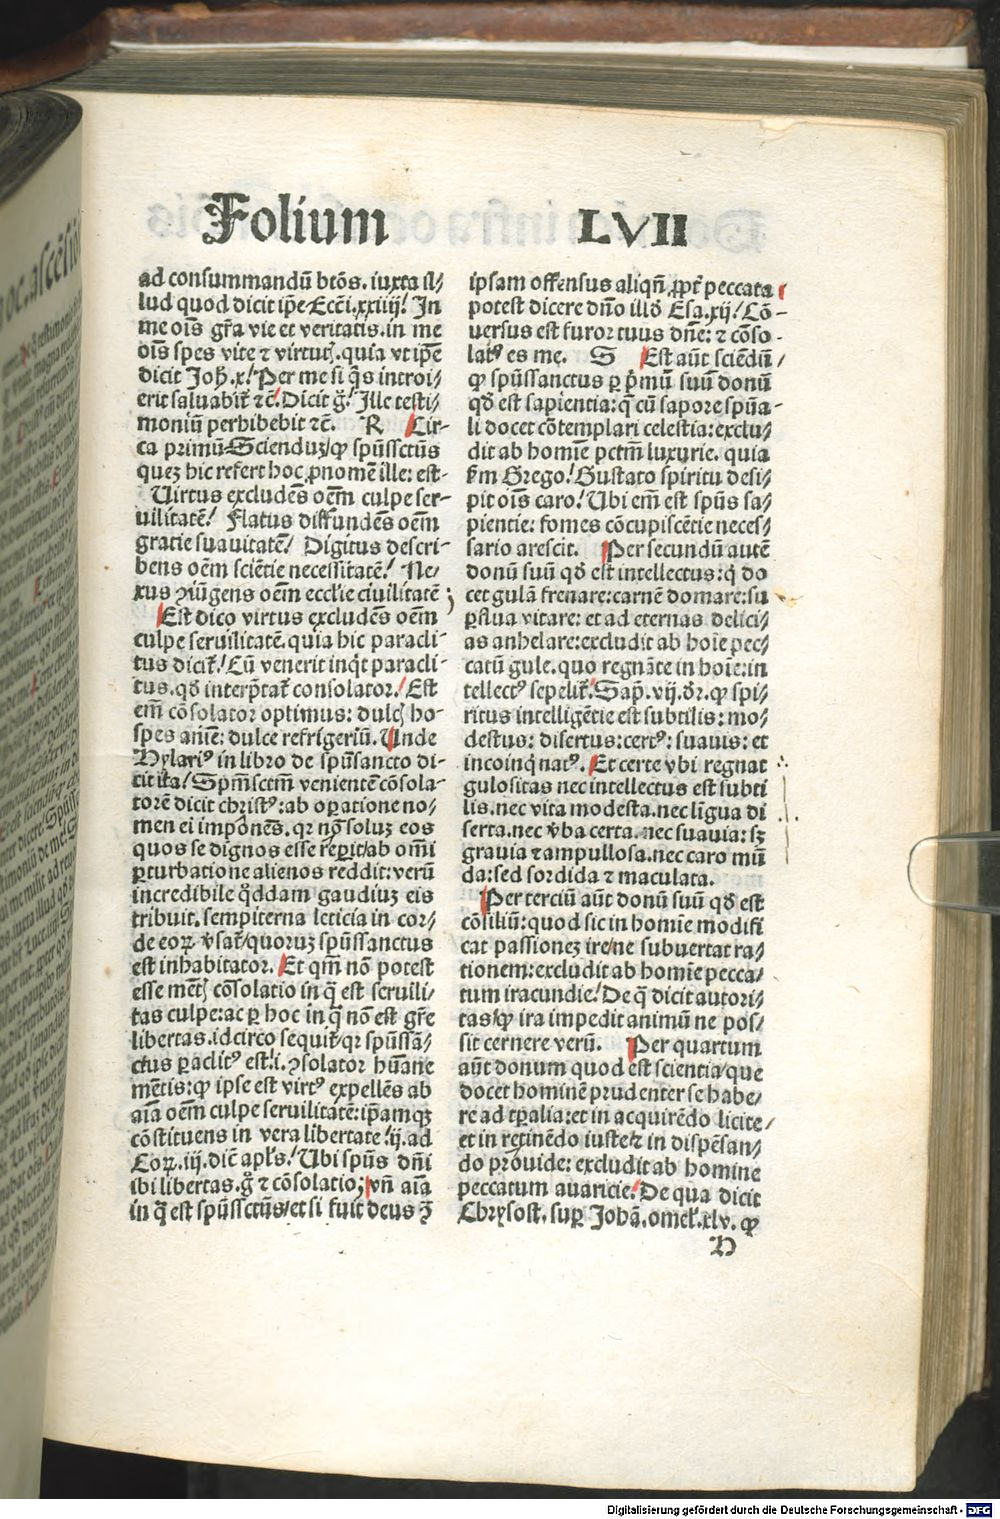 Folium LVII
ad consummandū btōs. iuxta il/
lud quod dicit ip̄e Ecci. xxiiij! In
me oīs gr̄a vie et veritatis. in me
oīs spes vite ⁊ virtutꝭ. quia vt ip̄e
dicit Joh̄. x! Per me si q̄s introi/
erit saluabit̄ ⁊c̄. Dicit g̊! Ille testi/
moniū perhibebit ⁊c̄. R Cir-
ca primū Scienduꝫ/ꝙ spūssctūs
queꝫ hic refert hoc ꝓnomē ille: est-
Uirtus excludēs oēm culpe ser-
uilitatē! Flatus diffundēs oēm
gratie suauitatē! Digitus descri-
bens oēm sciētie necessitatē! Ne/
xus ꝯiūgens oēm ecclie ciuilitatē;
Est dico virtus excludēs oēm
culpe seruilitatē. quia hic paracli-
tus dicit̄! Cū venerit inq̇t paracli-
tus. qđ interp̄tat̄ consolator. Est
em̄ cōsolator optimus: dulcꝭ ho-
spes anīe: dulce refrigeriū. Unde
Hylariꝰ in libro de spūsancto di-
cit ita! Spm̄sctm̄ venientē cōsola-
torē dicit christꝰ: ab oꝑatione no/
men ei impōnēs. qꝛ nō soluꝫ eos
quos se dignos esse reꝑit/ab om̄i
ꝑturbatione alienos reddit: verū
incredibile q̊ddam gaudiuꝫ eis
tribuit. sempiterna leticia in cor/
de eoꝝ v̄sat̄/quoruꝫ spūssanctus
est inhabitator. Et qm̄ nō potest
esse mētꝭ cōsolatio in q̄ est seruili/
tas culpe: ac ꝑ hoc in q̄ nō est gr̄e
libertas. idcirco sequit̄ qꝛ spūssā/
ctus ꝑaclitꝰ est .i. ꝯsolator hūane
mētis: ꝙ ipse est virtꝰ expellēs ab
aīa oēm culpe seruilitatē: ip̄amqꝫ
cōstituens in vera libertate! ij. ad
Coꝝ. iij. dic̄ apl̄s! Ubi spūs dn̄i
ibi libertas. g̊ ⁊ cōsolatio; vn̄ aīa
in q̄ est spūssctūs/et si fuit deus ꝫ
ipsam offensus aliqn̄. ꝓpt̄ peccata
potest dicere dn̄o illđ Esa. xij! Cō-
uersus est furor tuus dn̄e: ⁊ cōso-
latꝰ es me. S Est aūt sciendū/
ꝙ spūssanctus ꝑ p̄mū suū donū
qđ est sapientia: q̄ cū sapore spūa-
li docet cōtemplari celestia: exclu/
dit ab homīe pctm̄ luxurie. quia
fm̄ Grego! Gustato spiritu desi/
pit oīs caro! Ubi em̄ est spūs sa/
pientie: fomes cōcupiscētie neces/
sario arescit. Per secundū autē
donū suū qđ est intellectus: q̇ do
cet gulā frenare: carnē domare: su
ꝑflua vitare: et ad eternas delici/
as anhelare: excludit ab hoīe pec/
catū gule. quo regnāte in hoīe: in
tellectꝰ sepelit̄. Sap̄. vij. dr̄. ꝙ spi/
ritus intelligētie est subtilis: mo/
destus: disertus: certꝰ: suauis: et
incoinq̇natꝰ. Et certe vbi regnat
gulositas nec intellectus est subti
lis. nec vita modesta. nec līgua di
serta. nec v̄ba certa. nec suauia: sꝫ
grauia ⁊ ampullosa. nec caro mū
da: sed sordida ⁊ maculata.
Per terciū aūt donū suū qđ est
cōsiliū: quod sic in homīe modifi
cat passioneꝫ ire/ne subuertat ra/
tionem: excludit ab homīe pecca/
tum iracundie! De q̄ dicit autori/
tas/ꝙ ira impedit animū ne pos/
sit cernere verū. Per quartum
aūt donum quod est scientia/que
docet hominē prudenter se habe/
re ad tꝑalia: et in acquirēdo licite/
et in retinēdo iuste: ⁊ in dispēsan/
do prouide: excludit ab homine
peccatum auaricie. De qua dicit
Chrysost. suꝑ Johā. omel̄. xlv. ꝙ
H
Digitalisierung gefördert durch die Deutsche Forschungsgemeinschaft - DFG